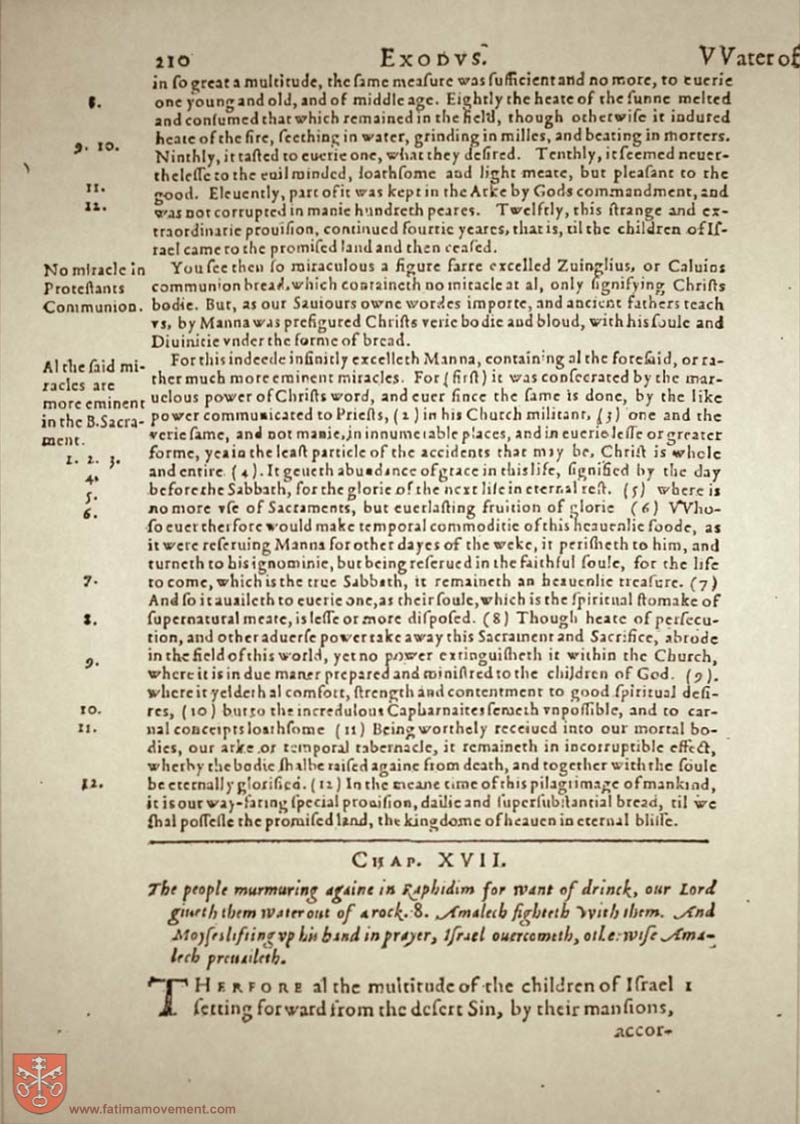 210 EXODVS. VVater of
in ſo great a multitude, the ſame meaſure was ſufficient and no more, to euerie
8. one young and old, and of middle age. Eightly the heate of the ſunne melted
and conſumed that which remained in the field, though otherwiſe it indured
9. 10. heate of the fire, ſeething in water, grinding in milles, and beating in morters.
Ninthly, it taſted to euerie one, what they deſired. Tenthly, it ſeemed neuer-
theleſſe to the euil minded, loathſome and light meate, but pleaſant to the
11. good. Eleuently, part of it was kept in the Arke by Gods commandment, and
12. was not corrupted in manie hundreth yeares. Twelftly, this ſtrange and ex-
traordinarie prouiſion, continued fourtie yeares, that is, til the children of Iſ-
rael came to the promiſed land and then ceaſed.
No miracle in You ſee then ſo miraculous a figure farre excelled Zuinglius, or Caluins
Proteſtants communion bread, which containeth no miracle at al, only ſignifying Chriſts
Communion. bodie. But, as our Sauiours owne wordes importe, and ancient fathers teach
vs, by Manna was prefigured Chriſts verie bodie and bloud, with his ſoule and
Diuinitie vnder the forme of bread.
Al the ſaid mi- For this indeede infinitly excelleth Manna, containing al the foreſaid, or ra-
racles are ther much more eminent miracles. For (firſt) it was conſecrated by the mar-
more eminent uelous power of Chriſts word, and euer ſince the ſame is done, by the like
in the B. Sacra- power communicated to Prieſts, (2) in his Church militant, (3) one and the
ment. verie ſame, and not manie, in innumerable places, and in euerie leſſe or greater
1. 2. 3. forme, yea in the leaſt particle of the accidents that may be, Chriſt is whole
4. and entire (4). It geueth abundance of grace in this life, ſignified by the day
5. before the Sabbath, for the glorie of the next life in eternal reſt. (5) where is
6. no more vſe of Sacraments, but euerlaſting fruition of glorie (6) VVho-
ſo euer therfore would make temporal commoditie of this heauenlie foode, as
it were reſeruing Manna for other dayes of the weke, it periſheth to him, and
turneth to his ignominie, but being reſerued in the faithful ſoule, for the life
7. to come, which is the true Sabbath, it remaineth an heauenlie treaſure. (7)
And ſo it auaileth to euerie one, as their ſoule, which is the ſpiritual ſtomake of
8. ſupernatural meate, is leſſe or more diſpoſed. (8) Though heate of perſecu-
tion, and other aduerſe power take away this Sacrament and Sacrifice, abrode
9. in the field of this world, yet no power extinguiſheth it within the Church,
where it is in due maner prepared and miniſtred to the children of God. (9).
where it yeldeth al comfort, ſtrength and contentment to good ſpiritual deſi-
10. res, (10) but to the incredulous Capharnaites ſemeth vnpoſſible, and to car-
11. nal conceipts loathſome (11) Being worthely receiued into our mortal bo-
dies, our arke or temporal tabernacle, it remaineth in incorruptible effect,
wherby the bodie ſhal be raiſed againe from death, and together with the ſoule
12. be eternally glorified. (12) In the meane time of this pilagrimage of mankind,
it is our way-faring ſpecial prouiſion, dailie and ſuperſubſtantial bread, til we
ſhal poſſeſſe the promiſed land, the kingdome of heauen in eternal bliſſe.
CHAP. XVII.
The people murmuring againe in Raphidim for want of drinck, our Lord
giueth them water out of a rock. 8. Amalech fighteth with them. And
Moyſes lifting vp his hand in prayer, Iſrael ouercometh, otherwiſe Ama-
lech preuaileth.
THERFORE al the multitude of the children of Iſrael 1
ſetting forward from the deſert Sin, by their manſions,
accor-
www.fatimamovement.com